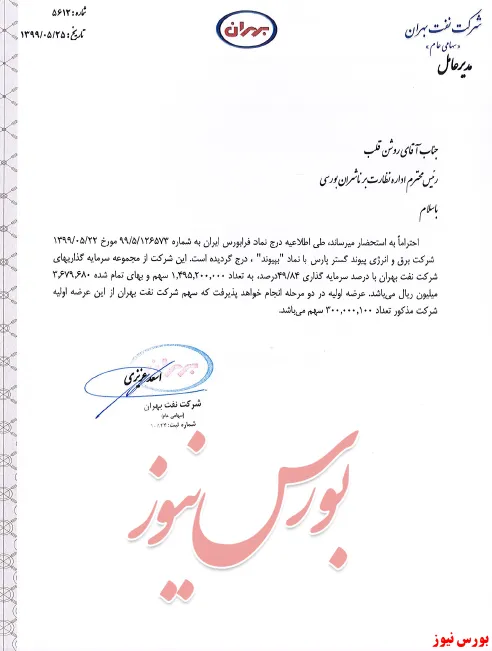 شرکت نفت بهران
«سهامی عام»
مدیرعامل
بهران
شماره: ۵۶۱۲
تاریخ: ۱۳۹۹/۰۵/۲۵
جناب آقای روشن قلب
رئیس محترم اداره نظارت بر ناشران بورسی
باسلام
احتراماً به استحضار میرساند، طی اطلاعیه درج نماد فرابورس ایران به شماره ۹۹/۵/۱۲۶۵۷۳ مورخ ۱۳۹۹/۰۵/۲۲
شرکت برق و انرژی پیوند گستر پارس با نماد "بپیوند" ، درج گردیده است. این شرکت از مجموعه سرمایه گذاریهای
شرکت نفت بهران با درصد سرمایه گذاری ۴۹/۸۴درصد، به تعداد ۱,۴۹۵,۲۰۰,۰۰۰ سهم و بهای تمام شده ۳,۶۷۹,۶۸۰
میلیون ریال می‌باشد. عرضه اولیه در دو مرحله انجام خواهد پذیرفت که سهم شرکت نفت بهران از این عرضه اولیه
شرکت مذکور تعداد ۳۰۰,۰۰۰,۱۰۰ سهم می‌باشد.
بهران
شرکت نفت بهران
(سهامی عام)
شماره ثبت:
بورس نیوز
بورس نیوز